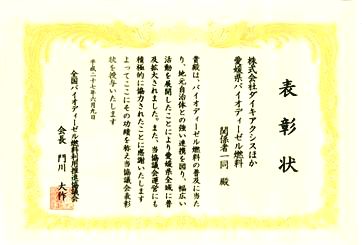 表彰状
株式会社ダイキアクシスほか
愛媛県バイオディーゼル燃料
関係者一同 殿
貴殿は、バイオディーゼル燃料の普及に当た
り、地元自治体との強い連携を図り、幅広い
活動を展開したことにより愛媛県全域に普
及拡大されました。また、当協議会運営にも
積極的に協力されたことに感謝いたします
よってここにその功績を称え当協議会表彰
状を授与いたします
平成二十七年六月九日
全国バイオディーゼル燃料利用推進協議会
会長 門川 大作